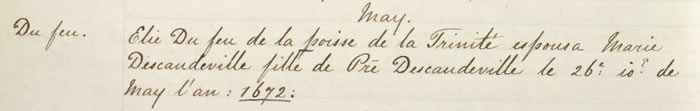 May.
Du feu. Elie Du feu de la poisse de la Trinité espousa Marie
Descaudeville fille de Pre Descaudeville le 26e. jor. de
May l'an: 1672: